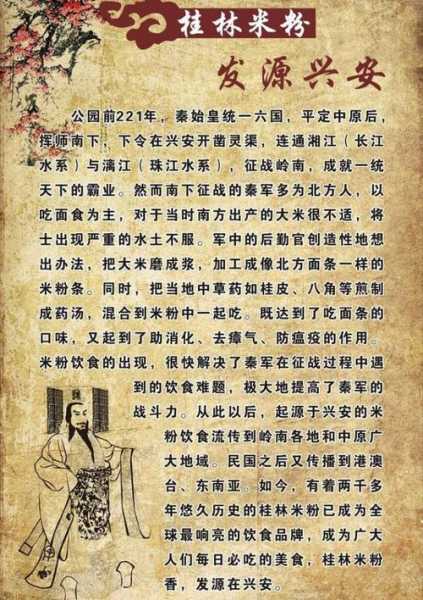 桂林米粉
发源兴安
公园前221年，秦始皇统一六国，平定中原后，
挥师南下，下令在兴安开凿灵渠，连通湘江（长江
水系）与漓江（珠江水系），征战岭南，成就一统
天下的霸业。然而南下征战的秦军多为北方人，以
吃面食为主，对于当时南方出产的大米很不适，将
士出现严重的水土不服。军中的后勤官创造性地想
出办法，把大米磨成浆，加工成像北方面条一样的
米粉条。同时，把当地中草药如桂皮、八角等煎制
成药汤，混合到米粉中一起吃。既达到了吃面条的
口味，又起到了助消化、去瘴气、防瘟疫的作用。
米粉饮食的出现，很快解决了秦军在征战过程中遇
到的饮食难题，极大地提高了秦军的
战斗力。从此以后，起源于兴安的米
粉饮食流传到岭南各地和中原广
大地域。民国之后又传播到港澳
台、东南亚。如今，有着两千多
年悠久历史的桂林米粉已成为全
球最响亮的饮食品牌，成为广大
人们每日必吃的美食，桂林米粉
香，发源在兴安。